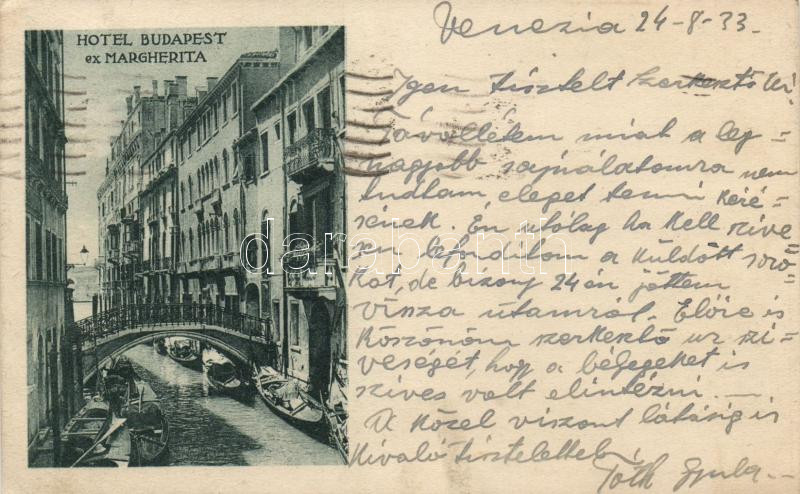 HOTEL BUDAPEST
ex MARGHERITA
Venezia 24-8-33.
Igen tisztelt Szerkesztő Úr!
Távollétem miat a leg-
nagyobb sajnálatomra nem
tudtam eleget tenni kéré-
sének. Én utólag ha kell szíve
sen lefordítom a küldött soro
kat, de bizony 24 én jöttem
vissza útamról. Előre is
Köszönöm szerkesztő ur szi-
vességét, hogy a bélyegeket is
szives volt elintézni. —
A közel viszont látásig is
Kiváló tisztelettel
Tóth Gyula
darabanth.com